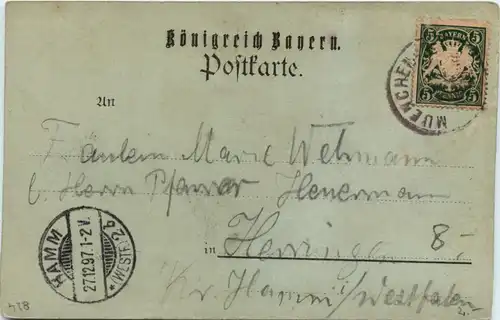 Königreich Bayern.
Postkarte.
BAYERN
5 5
MUENCHEN
An
Fräulein Marie Wehmann
b. Herrn Pfarrer Heuermann
in Herringen 8-
Kr. Hamm i/Westfalen
HAMM
27.12.97.1-2 V.
* (WESTF.) 2a